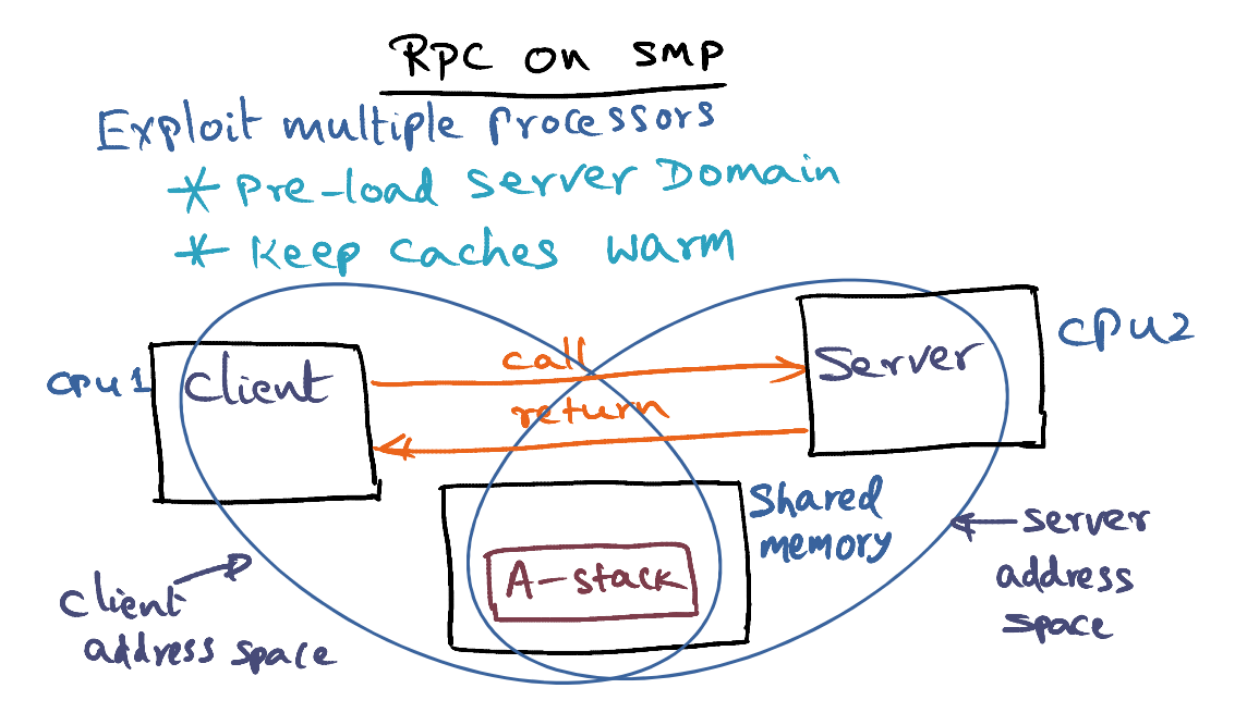 RPC on SMP
Exploit multiple processors
* Pre-load server Domain
* Keep caches warm
CPU1
Client
call
return
Server
CPU2
Shared
memory
A-stack
client
address space
server
address
space